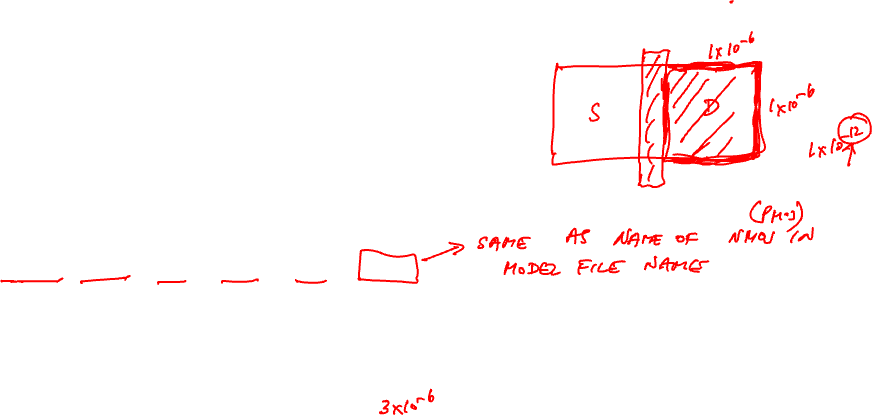 1×10⁻⁶
S D 1×10⁻⁶
1×10⁻¹²
(PMOS)
SAME AS NAME OF NMOS IN
MODEL FILE NAME
3×10⁻⁶